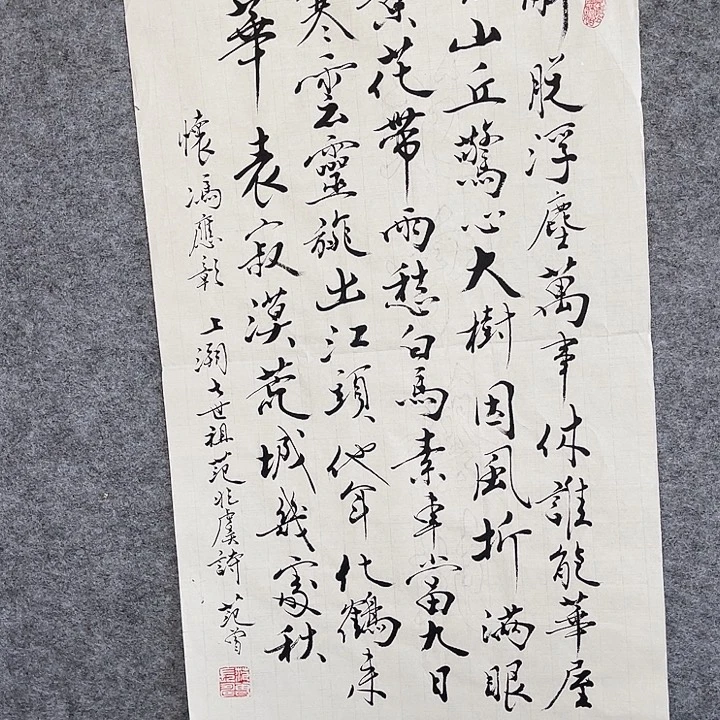 脱浮塵萬事休誰能華屋
山丘驚心大樹因風折滿眼
花帶雨愁白馬素車當九日
寒雲靈旐出江頭他年化鶴來
華表寂漠荒城幾處秋
懷馮應彰 上溯七世祖范兆虞詩 范曾